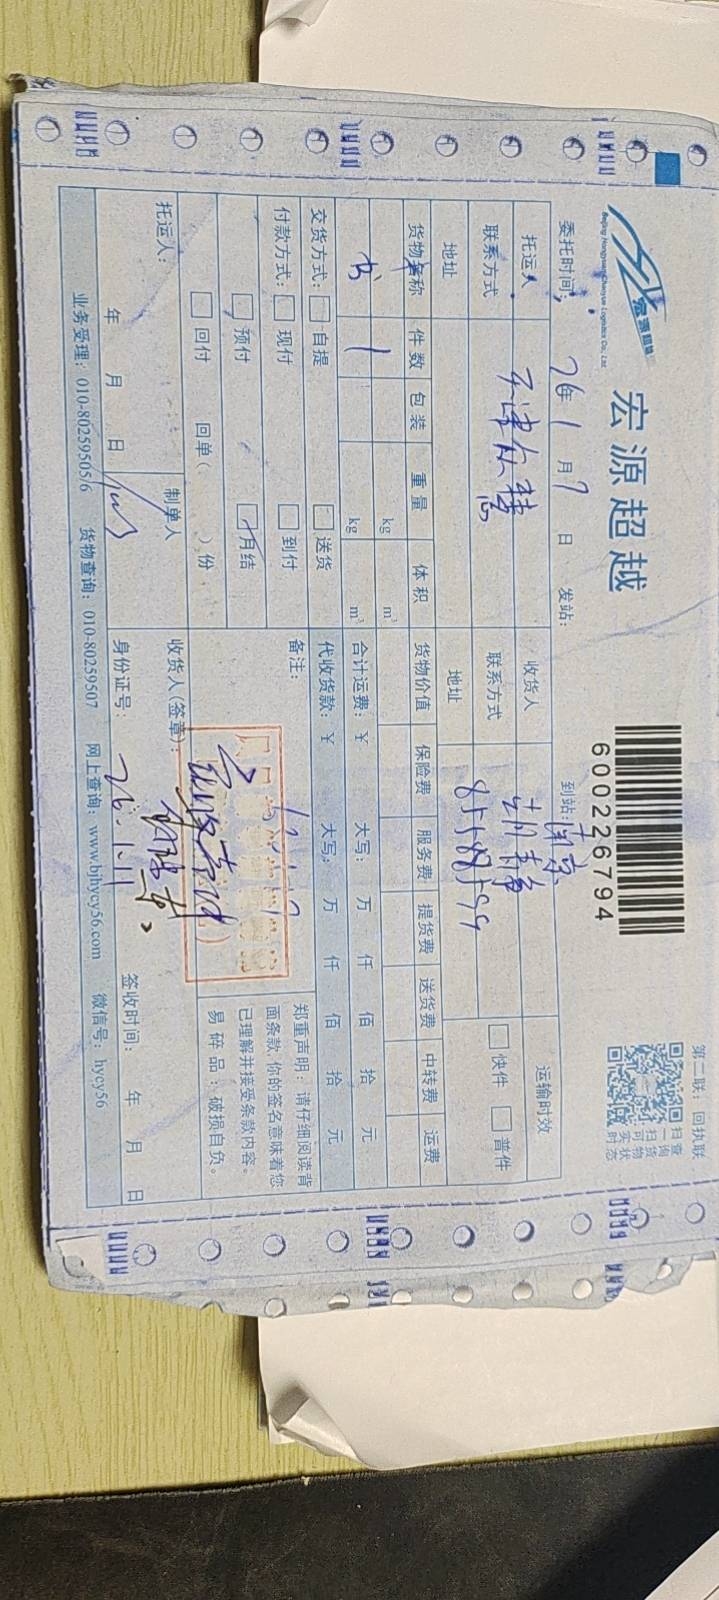 Beijing Hongyuanchaoyue Logistics Co., Ltd.
宏源超越
宏源超越
600226794
第二联：回执联
扫一扫
查询货物
可实时状态
委托时间： 26年 1 月 7 日 发站： 到站：南京
托运人 收货人 运输时效
联系方式 联系方式 快件 普件
胡静
85588599
地址 地址
货物名称 件数 包装 重量 体积 货物价值 保险费 服务费 提货费 送货费 中转费 运费
kg m³
书 1 kg m³ 合计运费：￥ 大写： 万 仟 佰 拾 元
交货方式： 自提 送货 代收货款：￥ 大写： 万 仟 佰 拾 元
付款方式： 现付 到付 备注：
预付 月结
回付 回单（ ）份
郑重声明：请仔细阅读背
面条款，你的签名意味着您
已理解并接受条款内容。
易碎品：破损自负。
托运人： 制单人 收货人（签章）：
年 月 日 身份证号： 26.1.11 签收时间： 年 月 日
业务受理：010-80259505/6 货物查询：010-80259507 网上查询：www.bjhycy56.com 微信号：hycy56